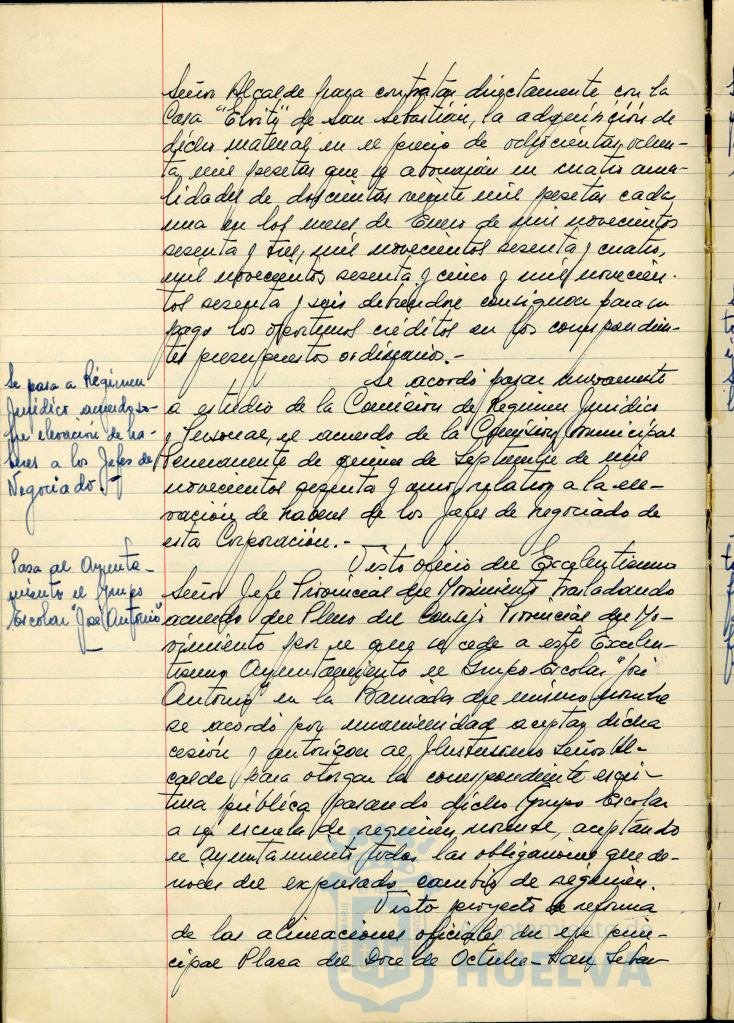 Señor Alcalde para contratar directamente con la
Casa "Elvity" de San Sebastián, la adquisición de
dicho material en el precio de ochocientas ochen-
ta mil pesetas que se abonarán en cuatro anua-
lidades de doscientas veinte mil pesetas cada
una en los meses de Enero de mil novecientos
sesenta y tres, mil novecientos sesenta y cuatro,
mil novecientos sesenta y cinco y mil novecien-
tos sesenta y seis debiéndose consignar para su
pago los oportunos créditos en los correspondien-
tes presupuestos ordinarios.-
Se pasa a Régimen
Jurídico acuerdo so-
bre elevación de ha-
beres a los Jefes de
Negociado.-
Se acordó pasar nuevamente
a estudio de la Comisión de Régimen Jurídico
y Personal, el acuerdo de la Comisión Municipal
Permanente de quince de Septiembre de mil
novecientos sesenta y uno, relativo a la ele-
vación de haberes de los Jefes de negociado de
esta Corporación.-
Pasa al Ayunta-
miento el Grupo
Escolar "José Antonio"
Visto oficio del Excelentísimo
Señor Jefe Provincial del Movimiento trasladando
acuerdo del Pleno del Consejo Provincial del Mo-
vimiento por el que se cede a este Excelen-
tísimo Ayuntamiento el Grupo Escolar "José
Antonio" en la Barriada del mismo nombre
se acordó por unanimidad aceptar dicha
cesión y autorizar al Ilustrísimo Señor Al-
calde para otorgar la correspondiente escri-
tura pública pasando dicho Grupo Escolar
a ser escuela de regimen normal, aceptando
el Ayuntamiento todas las obligaciones que de-
rivan del expresado cambio de regimen.
Visto proyecto de reforma
de las alineaciones oficiales en el
cipal Plaza del Doce de Octubre - San Sebas-
HUELVA